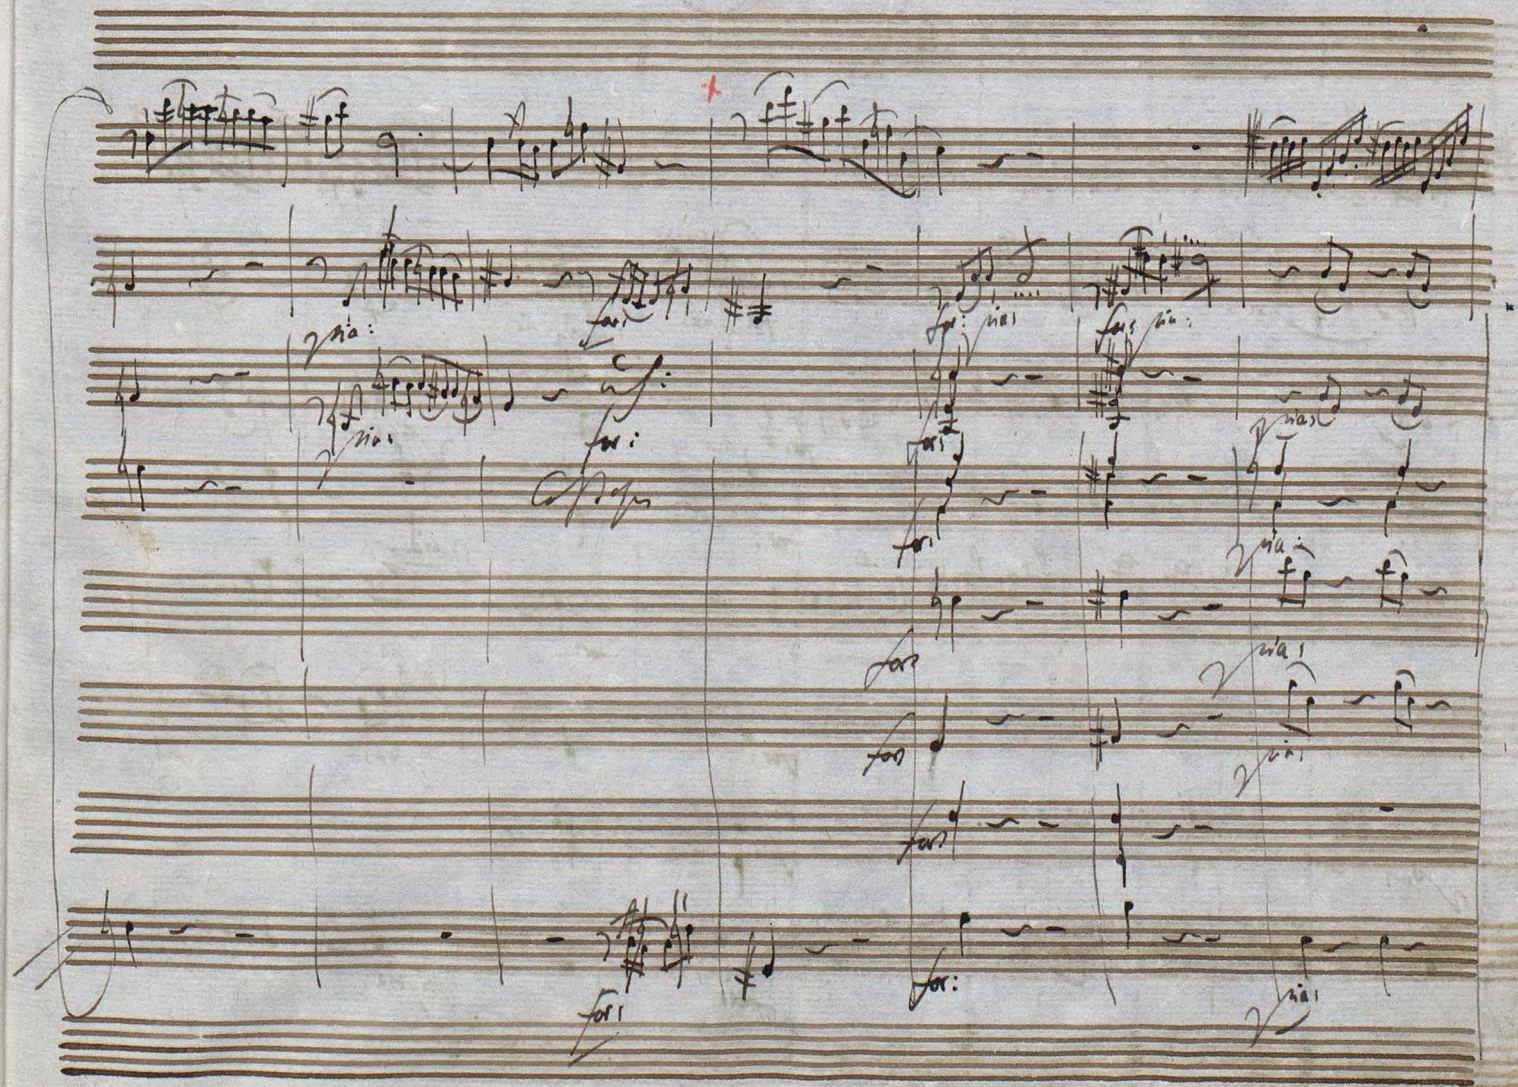 pia: for:
for: pia: for: pia:
pia: for:
for: pia:
for: pia:
for: pia:
for: pia:
for:
for: for: pia: